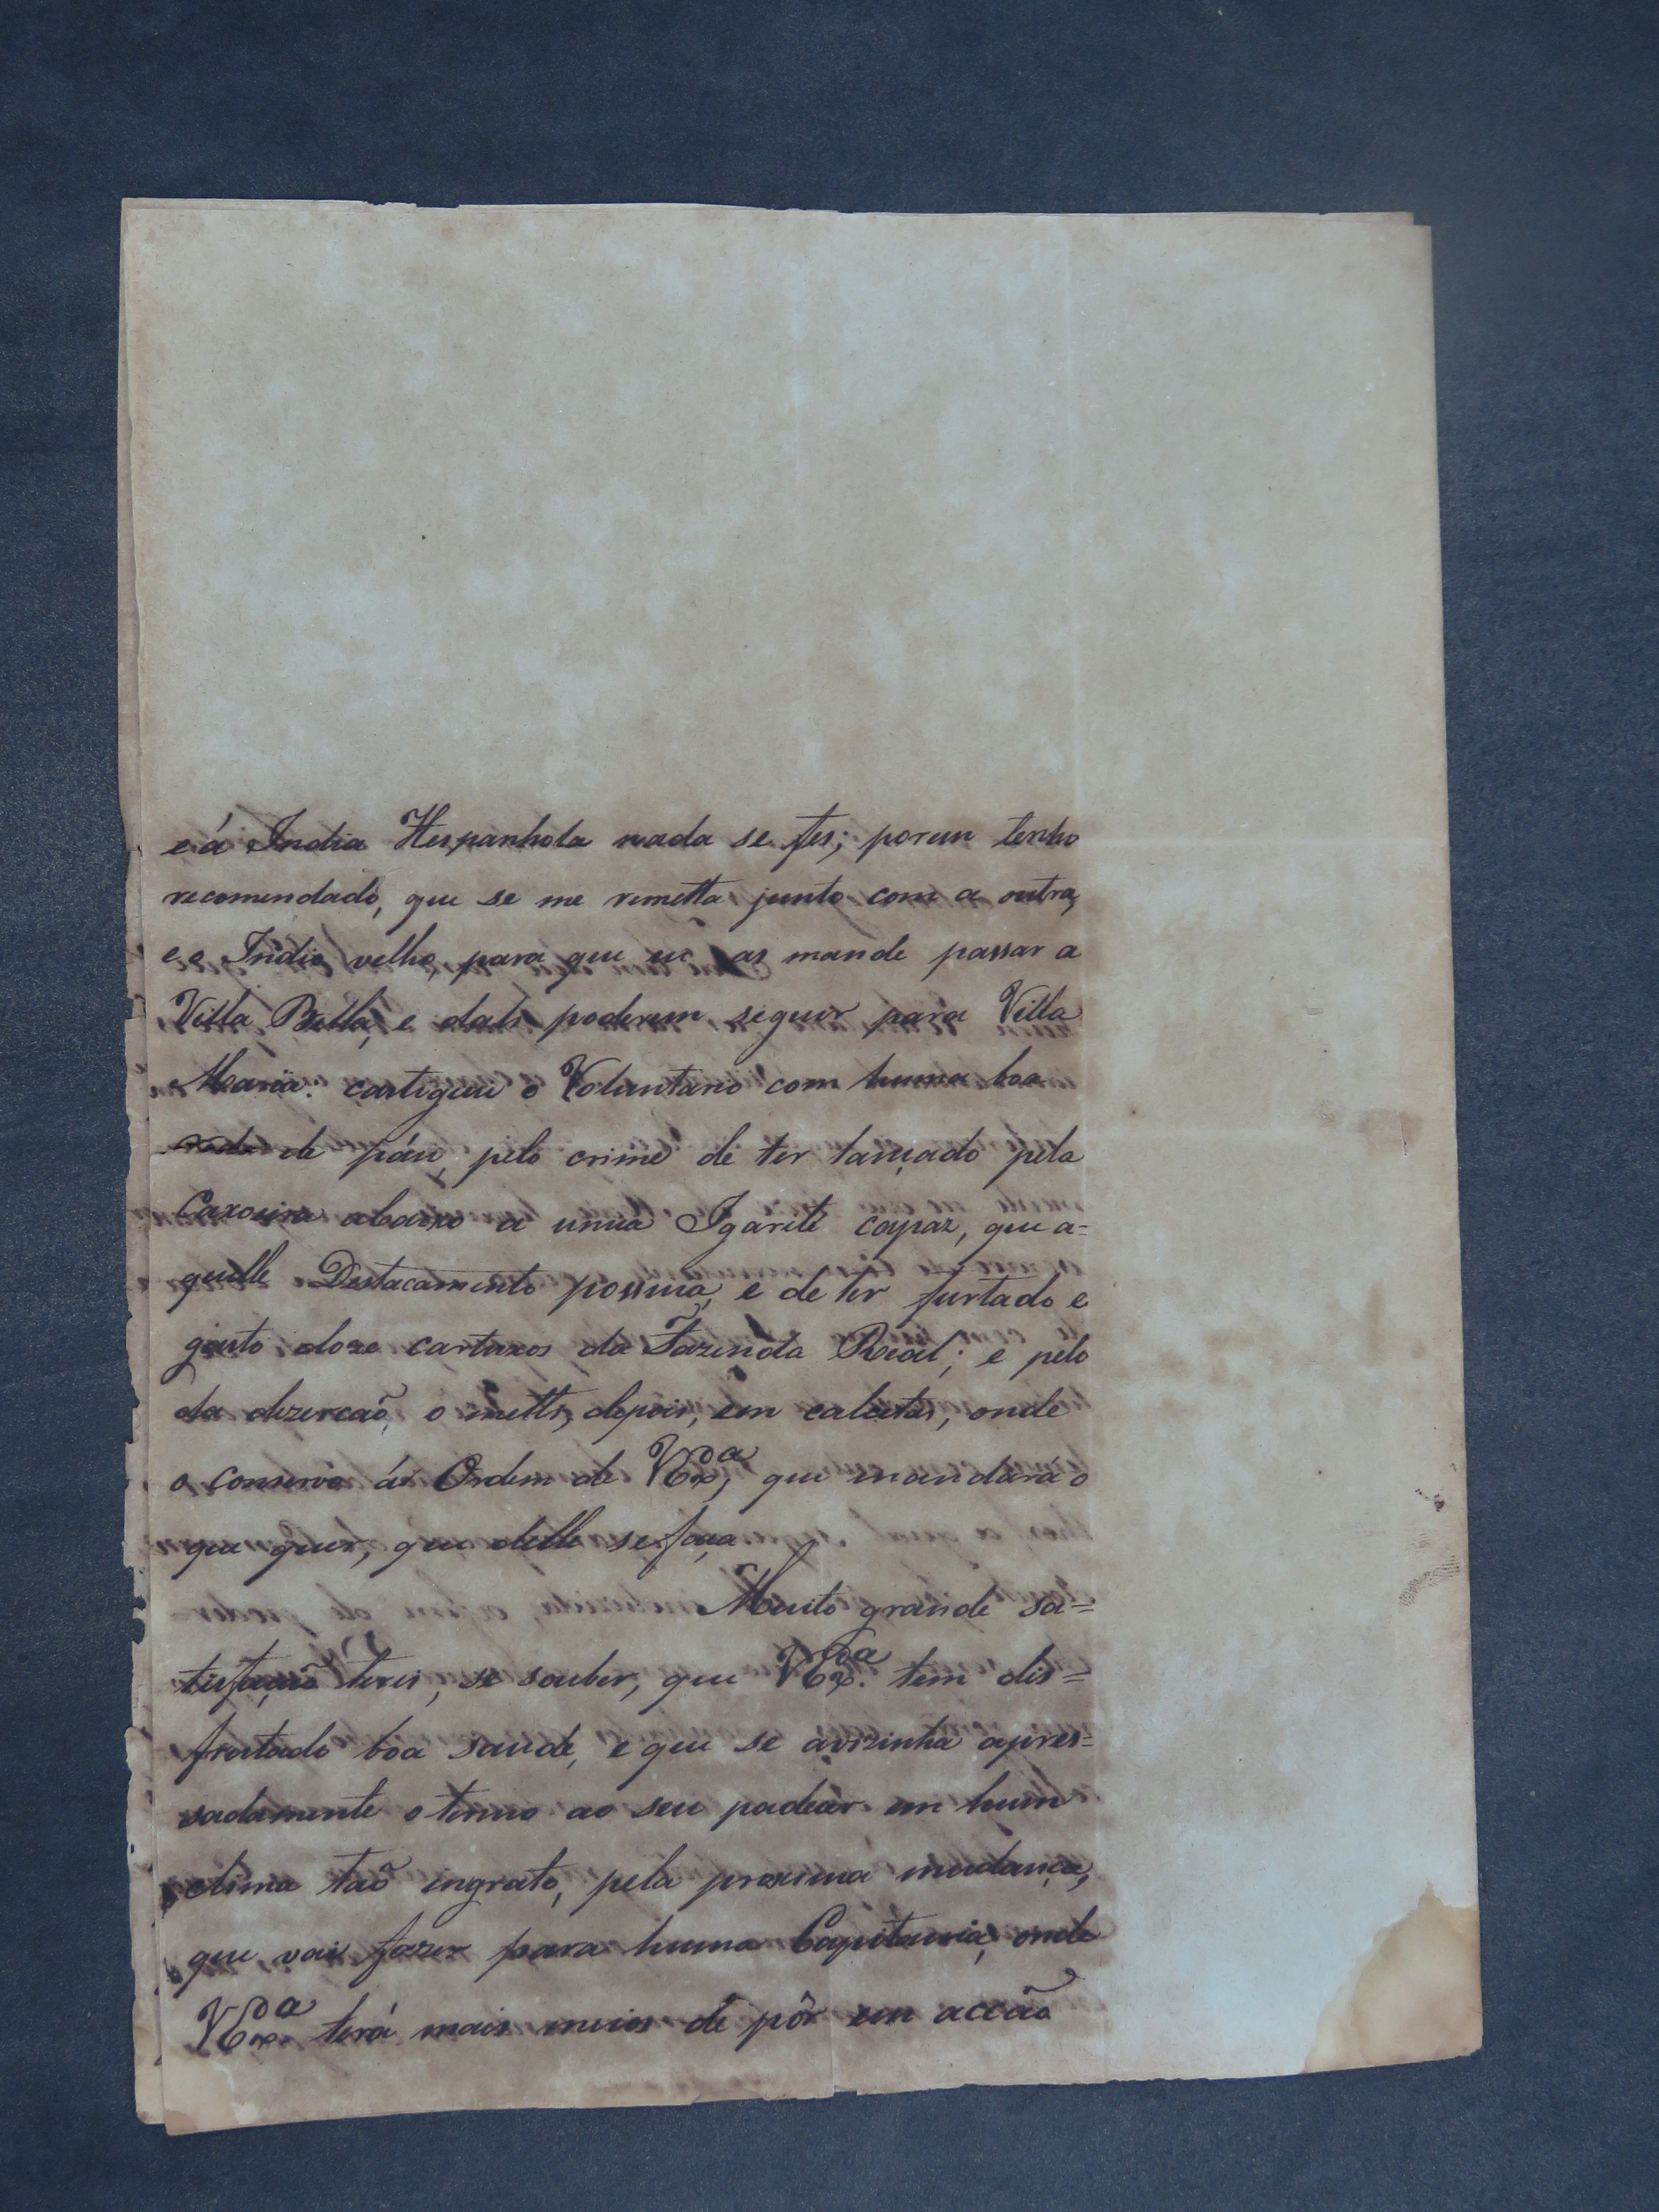 e á India Hespanhola nada se fes; porem tenho
recomendado, que se me remetta junto com a outra,
e o Indio velho, para que eu as mande passar a
Villa Bella, e dali poderem seguir para Villa
Maria: castiguei o Voluntario com huma boa
roda de páu, pelo crime de ter lançado pela
Caxoeira abaixo a unica Igarité capaz, que a=
quelle Destacamento possuia, e de ter furtado e
gasto doze cartuxos da Fazenda Real; e pelo
da dezercaõ, o metti, depois, em calcetas, onde
o conservo ás Ordem de VExª, que mandará o
que quer, que delle se faça.
Muito grande sa=
tisfaçaõ terei, se souber, que VExª. tem dis=
frutado boa saude, e que se avizinha apres=
sadamente o termo ao seu padecer em hum
clima taõ ingrato, pela proxima mudança,
que vai fazer para huma Capitania, onde
VExª terá mais meios de pôr em accão